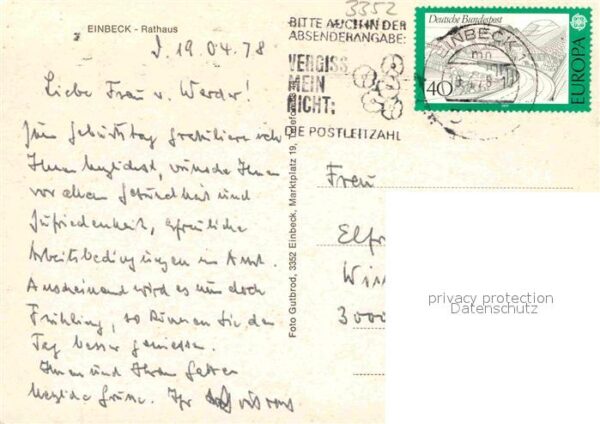 3352
EINBECK - Rathaus
BITTE AUCH IN DER
ABSENDERANGABE:
VERGISS
MEIN
NICHT:
DIE POSTLEITZAHL
EINBECK
Deutsche Bundespost
40
EUROPA
19.04.78
Liebe Frau v. Werder!
Zum Geburtstag gratuliere ich
Ihnen herzlichst, wünsche Ihnen
vor allem Gesundheit und
Zufriedenheit, erfreuliche
Arbeitsbedingungen im Amt.
Anscheinend wird es nun doch
Frühling, so können Sie den
Tag besser geniessen.
Ihnen und Ihrem Gatten
herzliche Grüsse. Ihr
Foto Gutbrod, 3352 Einbeck, Marktplatz 19, Telefon
Frau
Elfr
Win
3000
privacy protection
Datenschutz